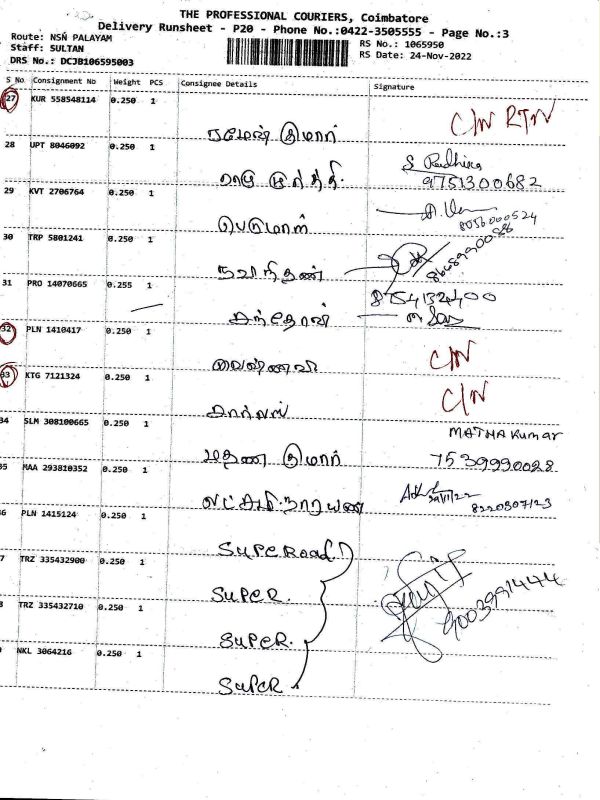 THE PROFESSIONAL COURIERS, Coimbatore
Delivery Runsheet - P20 - Phone No.:0422-3505555 - Page No.:3
Route: NSN PALAYAM
Staff: SULTAN
RS No.: 1065950
DRS No.: DCJB106595003
RS Date: 24-Nov-2022
S No Consignment No Weight PCS Consignee Details Signature
27 KUR 558548114 0.250 1 ரமேஸ் குமார் C/N RTN
28 UPT 8046092 0.250 1 ராமமூர்த்தி. 9751300682
29 KVT 2706764 0.250 1 பெருமாள் 8056000524
30 TRP 5801241 0.250 1
31 PRO 14070665 0.255 1 சந்தோஷ் 8754132400
32 PLN 1410417 0.250 1 வைஷ்ணவி C/N
33 KTG 7121324 0.250 1 கார்லஸ் C/N
34 SLM 308100665 0.250 1 மதன் குமார் MATHAKumar 7539990028
35 MAA 293810352 0.250 1 லட்சுமி நாராயணன் 8220507123
36 PLN 1415124 0.250 1
7 TRZ 335432900 0.250 1 SUPER.
8 TRZ 335432710 0.250 1 SUPER. 9003991444
9 NKL 3064216 0.250 1 SUPER